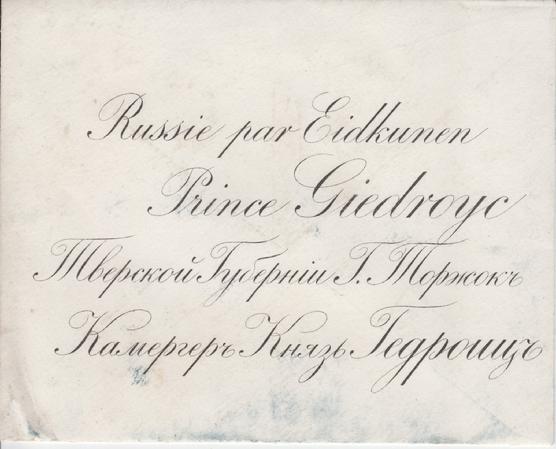 Russie par Eidkunen
Prince Giedroyc
Тверской Губернiи Г. Торжокъ
Камергеръ Князь Гедроицъ